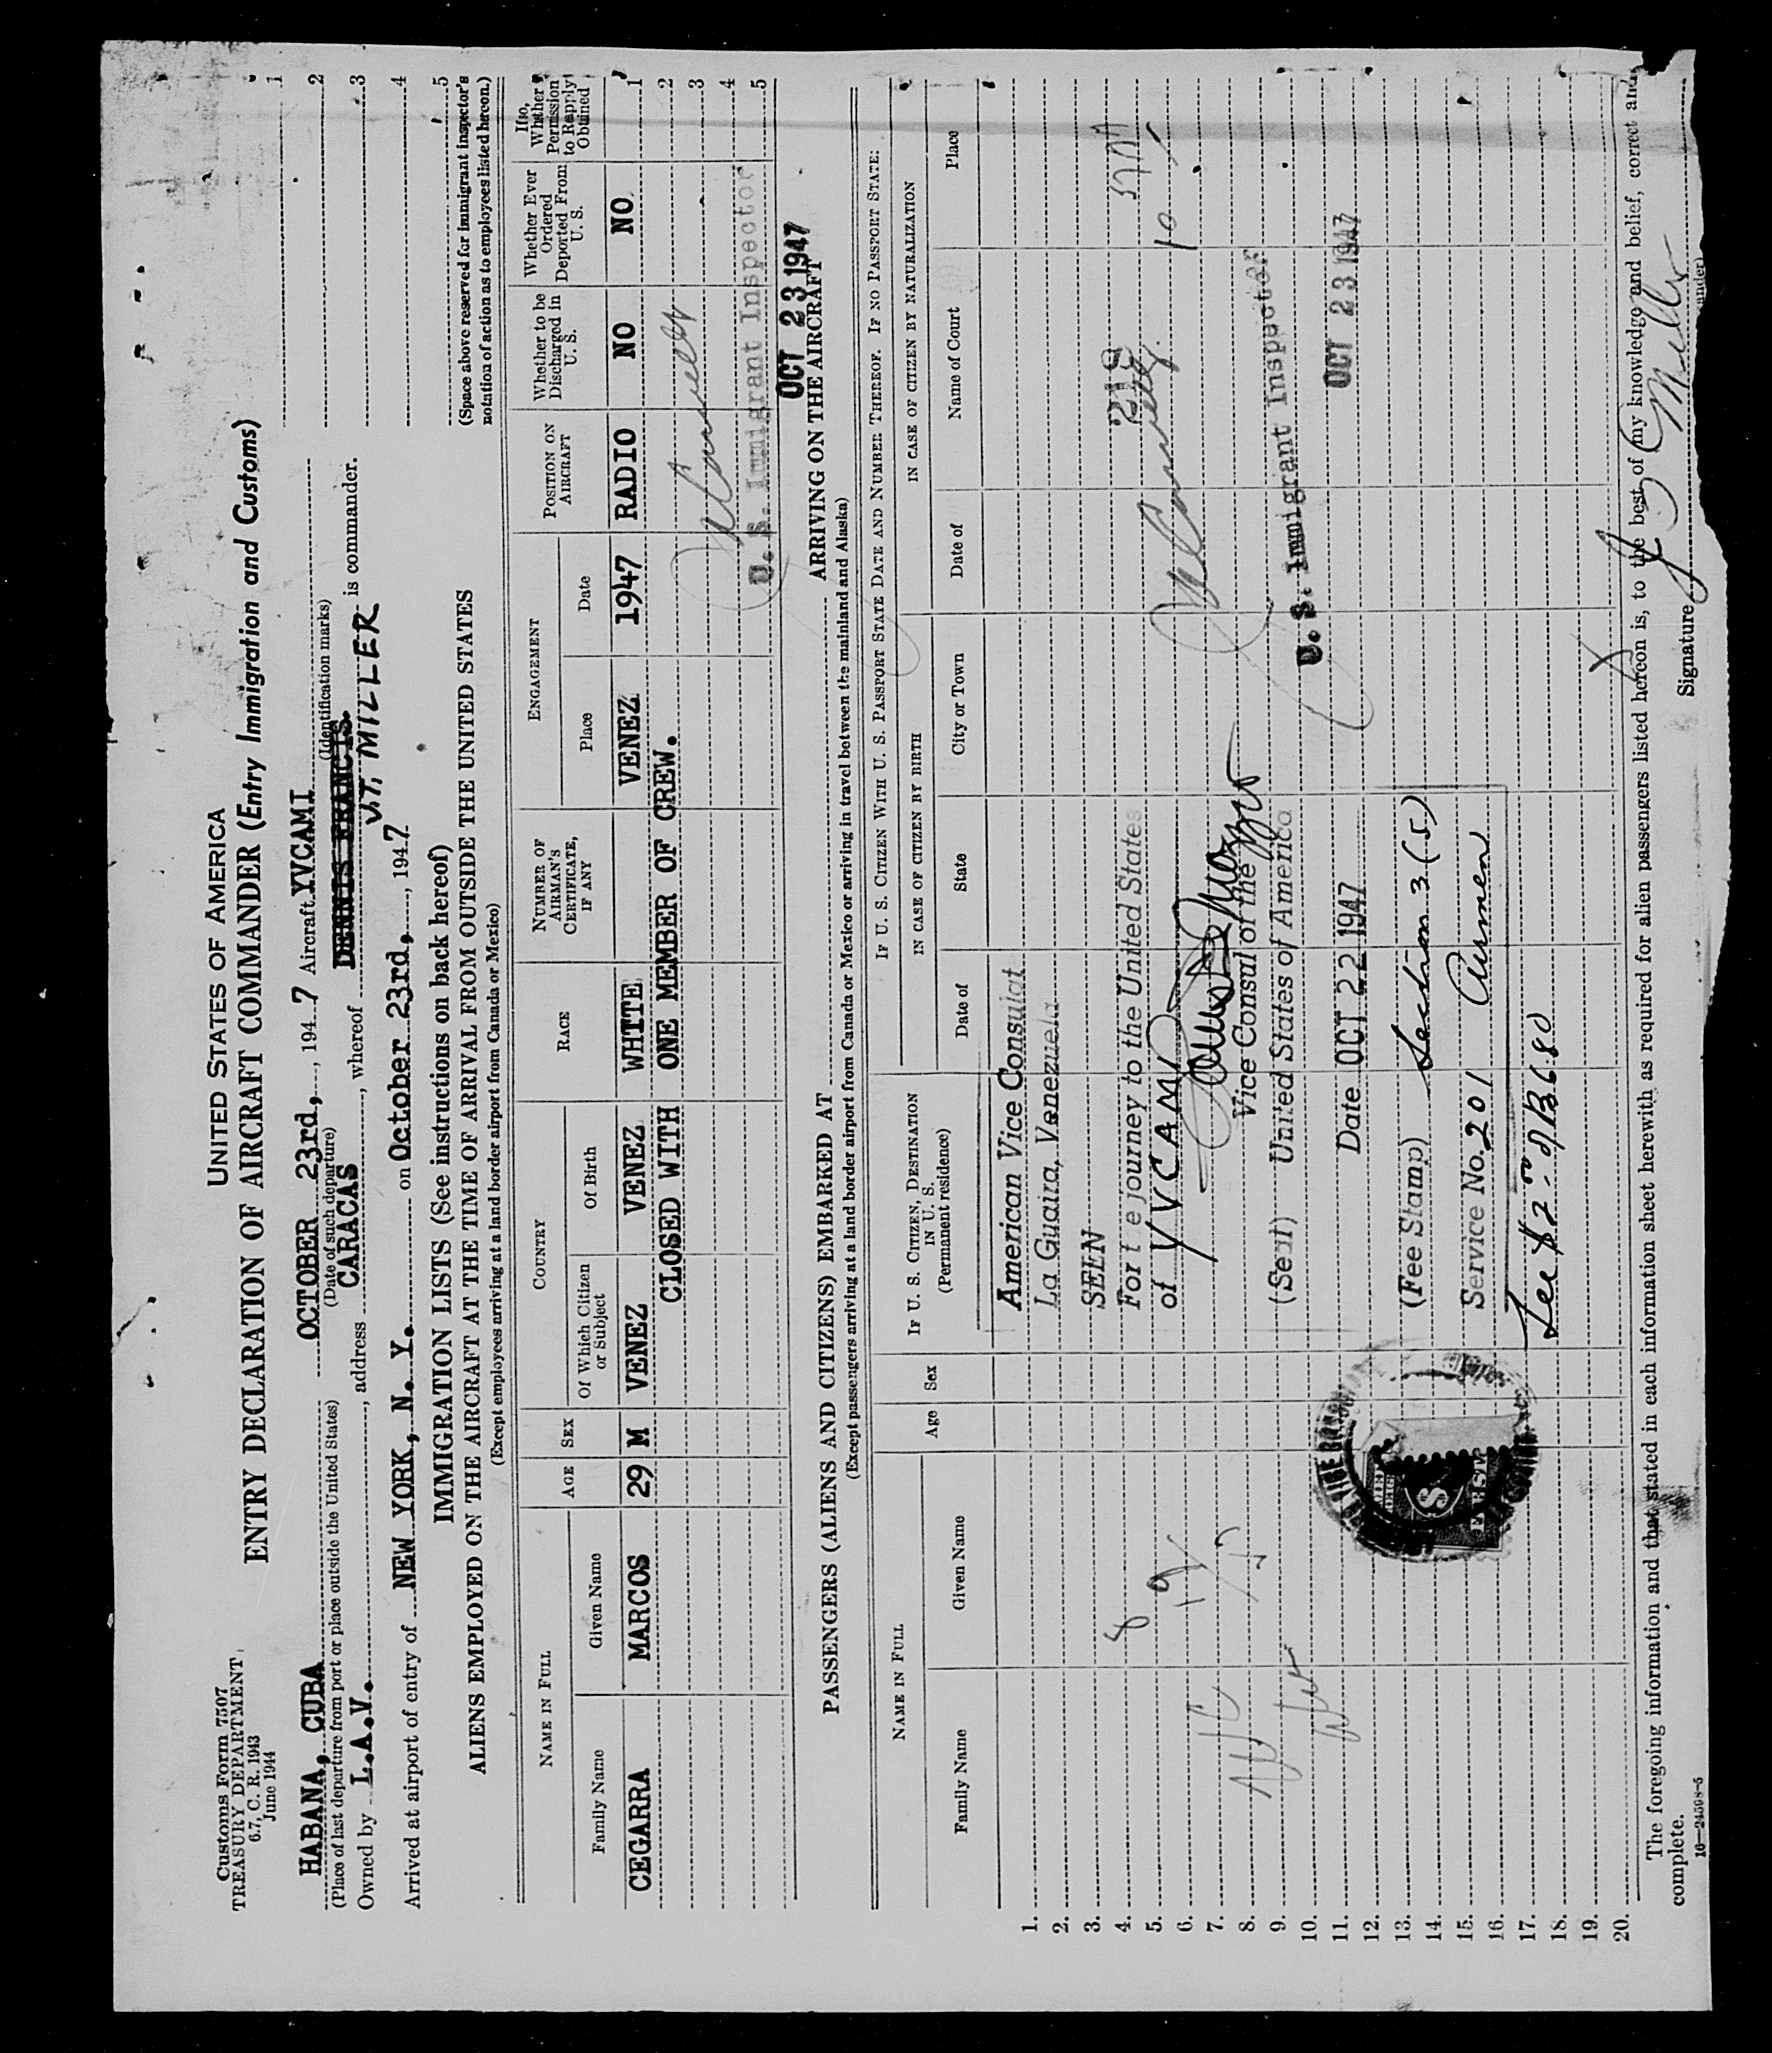 Customs Form 7507
TREASURY DEPARTMENT
6.7, C. R. 1943
June 1944
UNITED STATES OF AMERICA
ENTRY DECLARATION OF AIRCRAFT COMMANDER (Entry Immigration and Customs)
HABANA, CUBA OCTOBER 23rd, , 1947 Aircraft YVCAMI
(Place of last departure from port or place outside the United States) (Date of such departure) (Identification marks)
Owned by L.A.V. , address CARACAS , whereof DENNIS FRANCIS. J.T. MILLER is commander.
Arrived at airport of entry of NEW YORK, N. Y. on October 23rd, , 1947
1
2
3
4
5
(Space above reserved for immigrant inspector's
notation of action as to employees listed hereon.)
IMMIGRATION LISTS (See instructions on back hereof)
ALIENS EMPLOYED ON THE AIRCRAFT AT THE TIME OF ARRIVAL FROM OUTSIDE THE UNITED STATES
(Except employees arriving at a land border airport from Canada or Mexico)
NAME IN FULL
Family Name
Given Name
AGE
SEX
COUNTRY
Of Which Citizen or Subject
Of Birth
RACE
NUMBER OF AIRMAN'S CERTIFICATE, IF ANY
ENGAGEMENT
Place
Date
POSITION ON AIRCRAFT
Whether to be Discharged in U. S.
Whether Ever Ordered Deported From U. S.
If so, Whether Permission to Reapply Obtained
CEGARRA MARCOS 29 M VENEZ VENEZ WHITE VENEZ 1947 RADIO NO NO 1
CLOSED WITH ONE MEMBER OF CREW. 2
3
4
U. S. Immigrant Inspector 5
OCT 23 1947
PASSENGERS (ALIENS AND CITIZENS) EMBARKED AT ARRIVING ON THE AIRCRAFT
(Except passengers arriving at a land border airport from Canada or Mexico or arriving in travel between the mainland and Alaska)
NAME IN FULL
Family Name
Given Name
Age
Sex
IF U. S. CITIZEN, DESTINATION IN U. S.
(Permanent residence)
IF U. S. CITIZEN WITH U. S. PASSPORT STATE DATE AND NUMBER THEREOF. IF NO PASSPORT STATE:
IN CASE OF CITIZEN BY BIRTH
IN CASE OF CITIZEN BY NATURALIZATION
Date of
State
City or Town
Date of
Name of Court
Place
1.
2.
3.
4.
5.
6.
7.
8.
9.
10.
11.
12.
13.
14.
15.
16.
17.
18.
19.
20.
American Vice Consulat
La Guaira, Venezuela
SEEN
For t e journey to the United States
of YVCAMI
Vice Consul of the
(Seal) United States of America
Date OCT 22 1947
(Fee Stamp) Section 3 (5)
Service No. 201 Airmen
Fee $2.00
218
10
8
U. S. Immigrant Inspector
OCT 23 1947
The foregoing information and that stated in each information sheet herewith as required for alien passengers listed hereon is, to the best of my knowledge and belief, correct and
complete.
16—24598-5
Signature J Miller